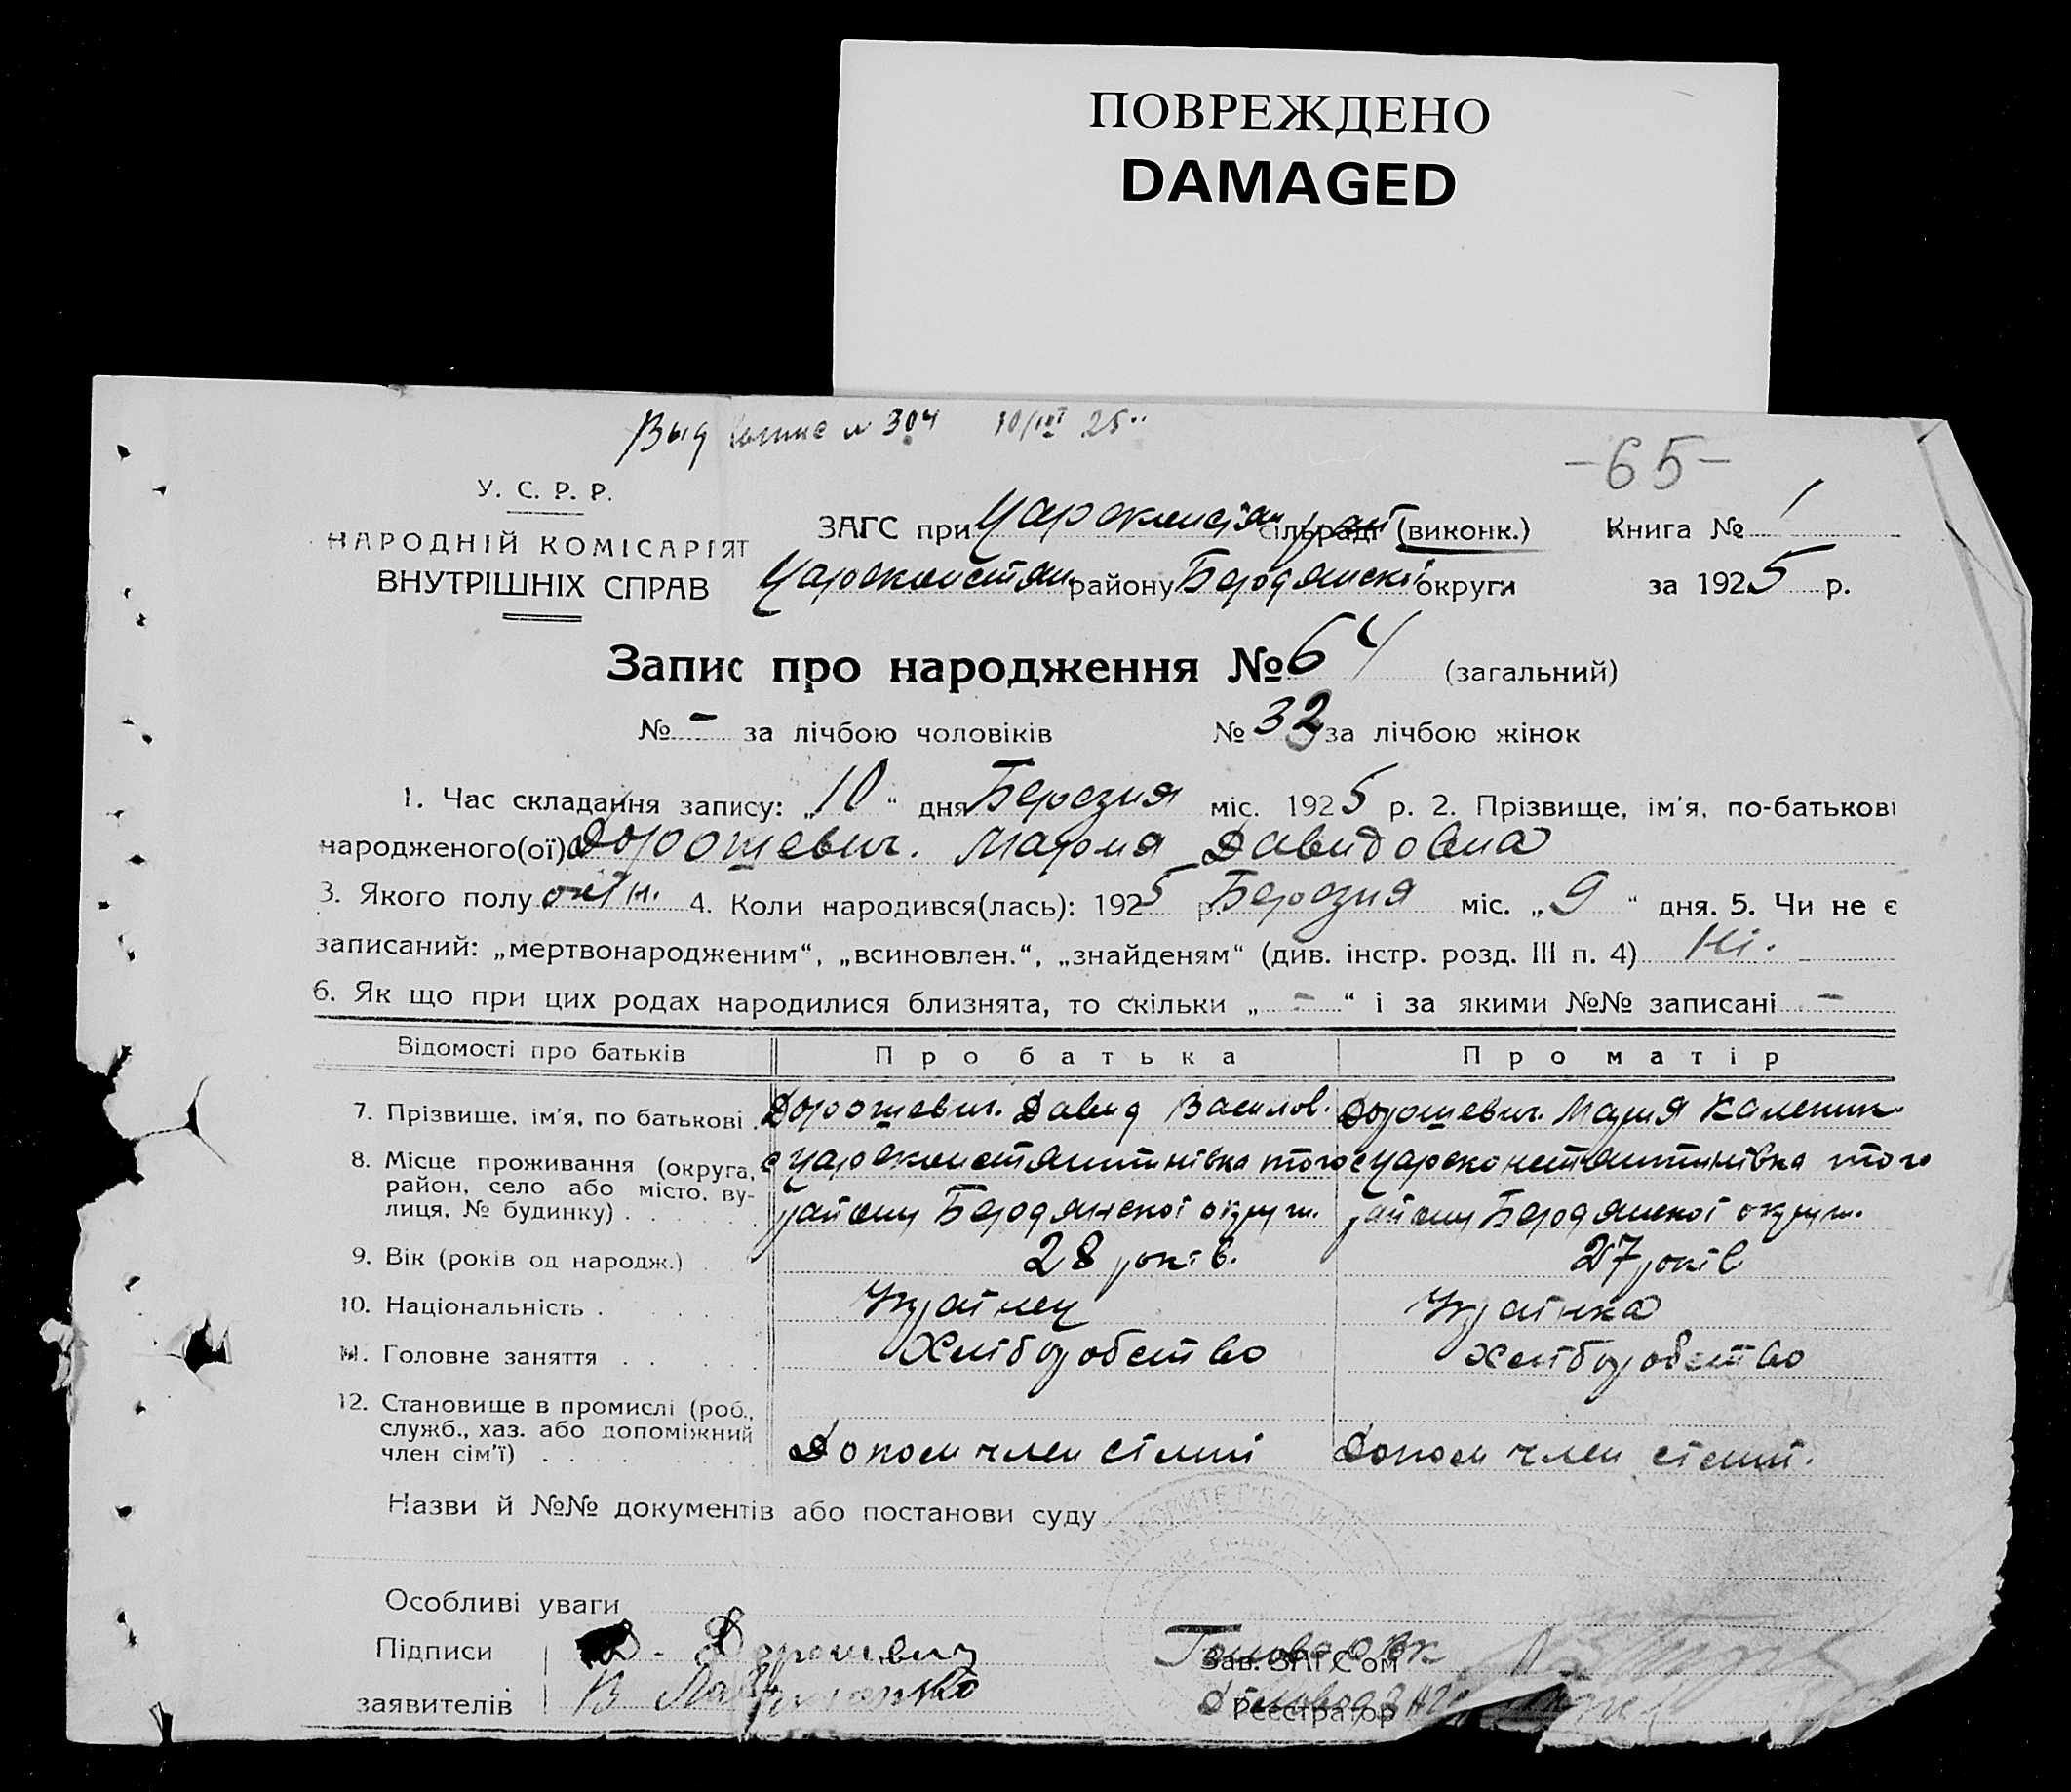 ПОВРЕЖДЕНО
DAMAGED
Выд № 304 10/III 25
-65-
У. С. Р. Р.
НАРОДНІЙ КОМІСАРІЯТ
ВНУТРІШНІХ СПРАВ
ЗАГС при Царсконстян сільраді (виконк.) Книга № 1
Царсконстян району Бердянскі округи за 1925 р.
Запис про народження № 64 (загальний)
№ - за лічбою чоловіків № 32 за лічбою жінок
1. Час складання запису: „10“ дня Березня міс. 1925 р. 2. Прізвище, ім'я, по-батькові
народженого(ої) Дорошевич. Мария Давидовна
3. Якого полу жін. 4. Коли народився(лась): 1925 р. Березня міс. „9“ дня. 5. Чи не є
записаний: „мертвонародженим“, „всиновлен.“, „знайденям“ (див. інстр. розд. III п. 4) Ні.
6. Як що при цих родах народилися близнята, то скільки „-“ і за якими №№ записані -
Відомості про батьків Про батька Про матір
7. Прізвище, ім'я, по батькові. Дорошевич. Давид Василов. Дорошевич. Мария Каленик.
8. Місце проживання (округа, район, село або місто, вулиця, № будинку) с Царсконстянтинівка того району Бердянскої округи. с Царсконстянтинівка того району Бердянскої округи.
9. Вік (років од народж.) 28 років. 27 років
10. Національність Українец Українка
11. Головне заняття Хліборобство Хліборобство
12. Становище в промислі (роб., служб., хаз. або допоміжний член сім'ї) Допом член сімиї Допом член сімиї.
Назви й №№ документів або постанови суду
Особливі уваги
Підписи Д. Дорошевич Голова
Зав. ЗАГС'ом
заявителів В
Реєстратор